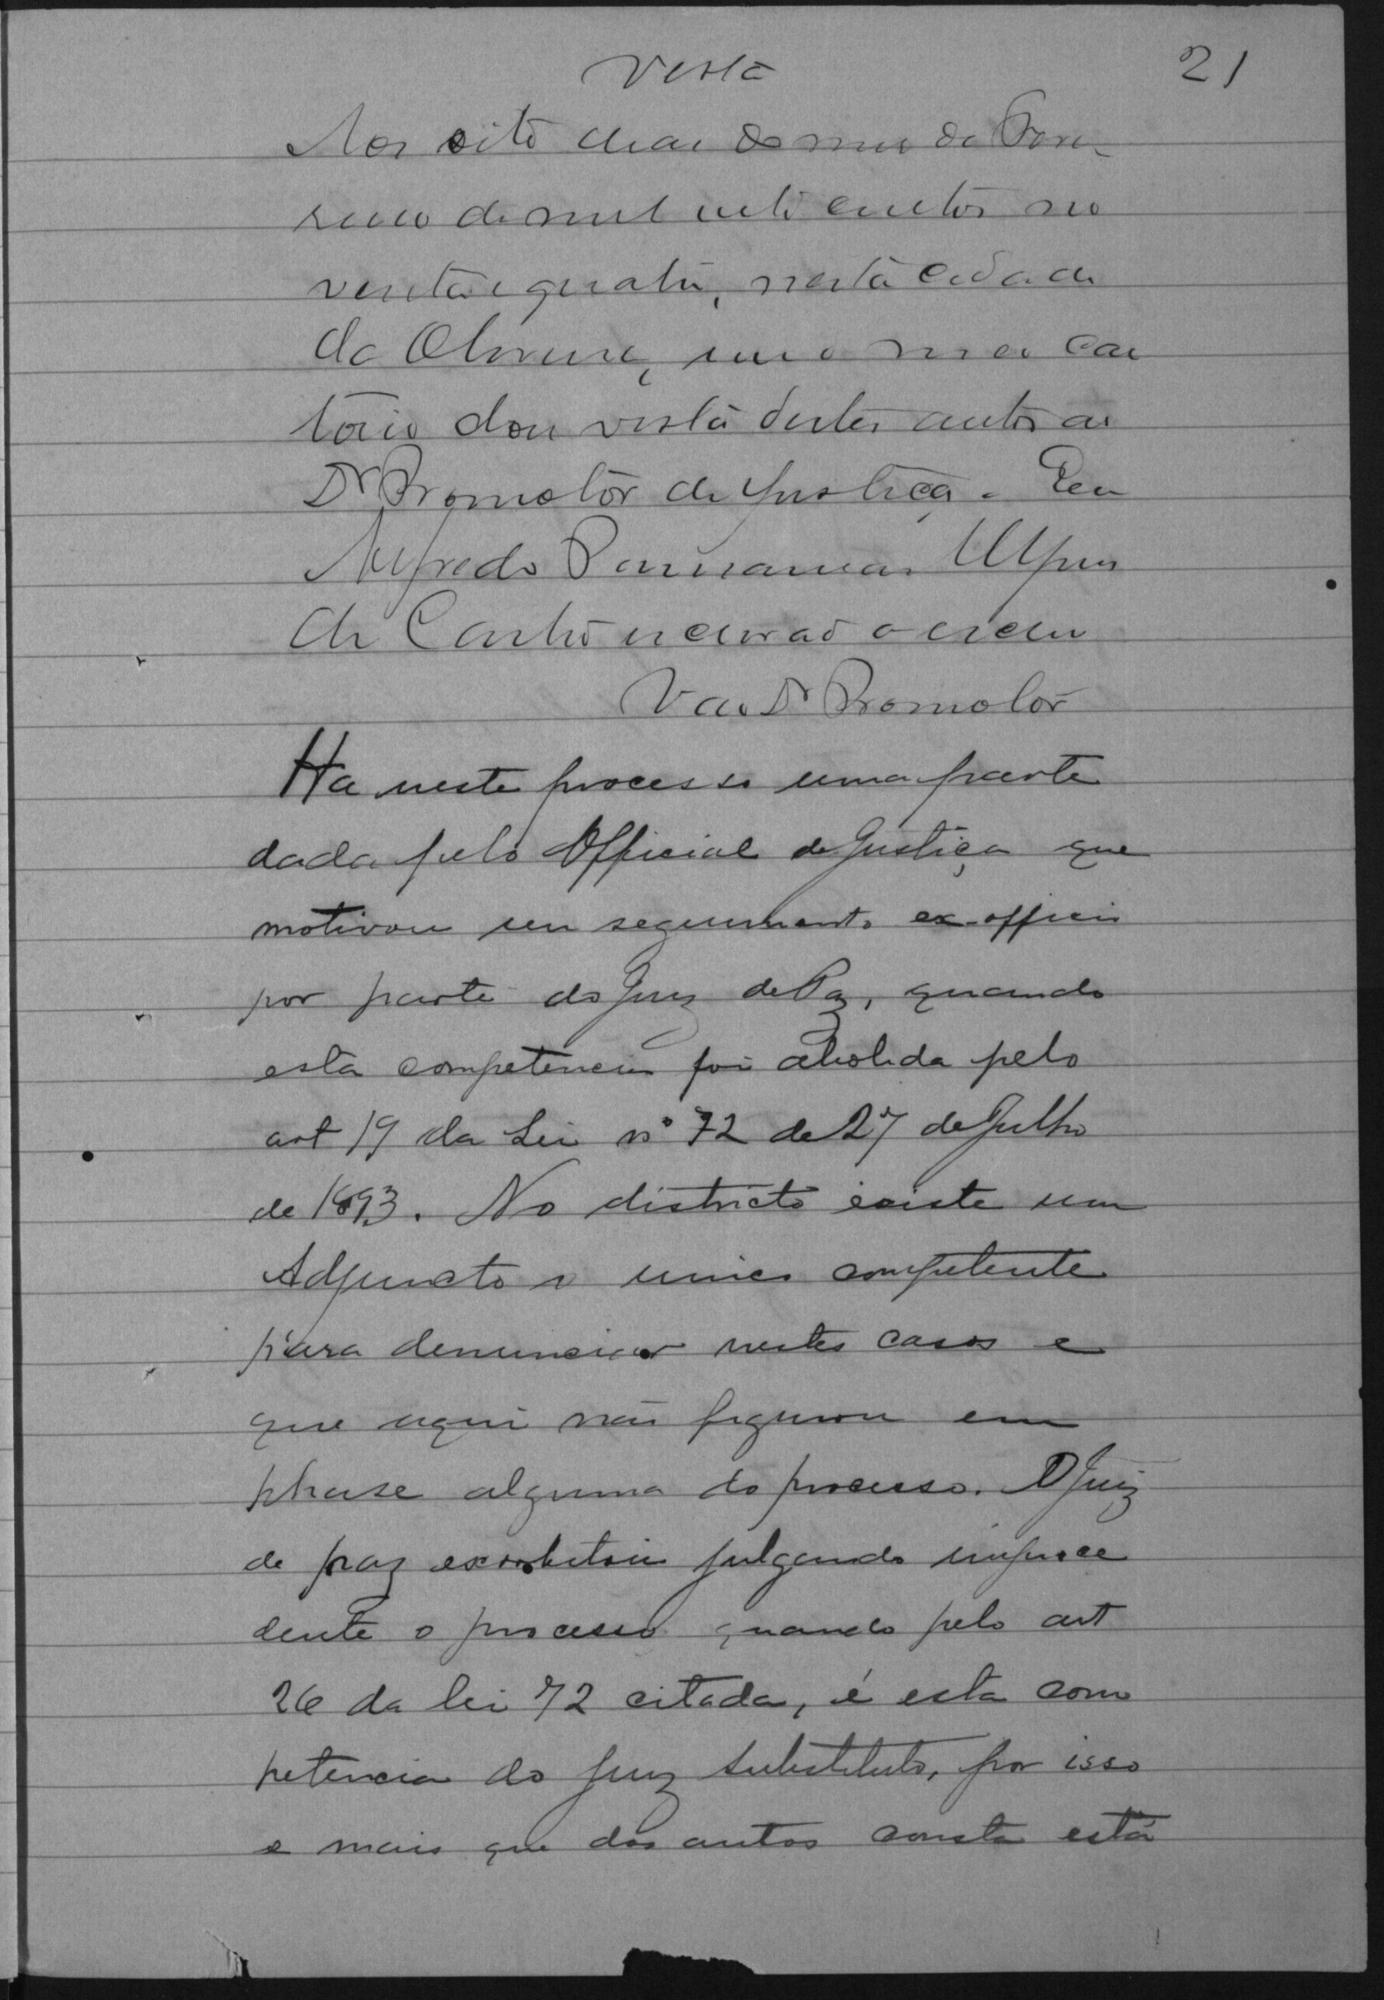 Vista
21
Aos oito dias do mez de Feve
reiro de mil oito centos no
venta e quatro, nesta cidade
de Oliveira, em o meu car
torio dou vista destes autos ao
Dr Promotor de Justiça. Eu
Alfredo
de Castro escrivão o escrevi
V ao Dr Promotor
Ha neste processo uma parte
dada pelo Official de Justiça que
motivou seu seguimento ex-officio
por parte do Juiz de Paz, quando
esta competencia foi abolida pelo
art 19 da Lei nº 72 de 27 de Julho
de 1893. No districto existe um
Adjuncto o unico competente
para denunciar nestes casos e
que aqui não figurou em
phase alguma do processo. O Juiz
de paz exorbitou julgando improce
dente o processo quando pelo art
26 da lei 72 citada, é esta com
petencia do Juiz Substituto, por isso
e mais que dos autos consta está